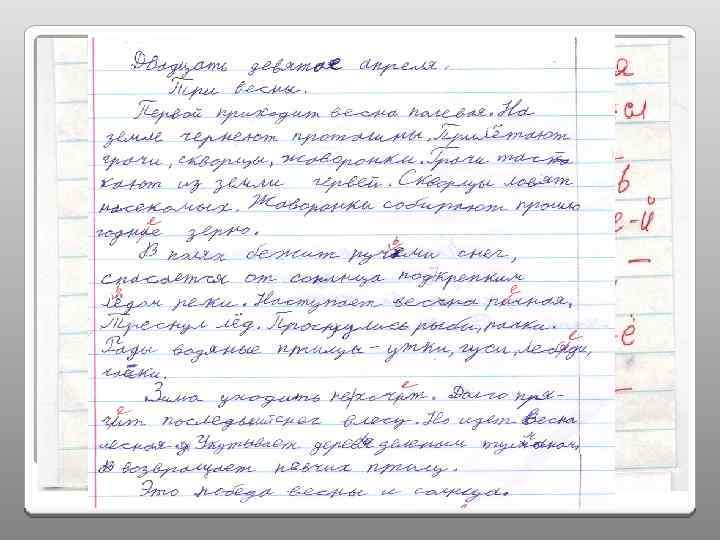 Двадцать девятое апреля.
Три весны.
Первой приходит весна полевая. На
земле чернеют проталины. Прилетают
грачи, скворцы, жаворонки. Грачи таска
кают из земли червей. Скворцы ловят
насекомых. Жаворонки собирают прошло
годнее зерно.
В полях бежит ручьями снег,
спасается от солнца под крепким
льдом реки. Наступает весна речная.
Треснул лёд. Проснулись рыбы, раки.
Рады водяные птицы - утки, гуси, лебеди,
чайки.
Зима уходить не хочет. Долго пря-
чет последний снег в лесу. Но идет весна
лесная. Укутывает деревья зеленым туманом,
возвращает певчих птиц.
Это победа весны и солнца.
я
ь
е-й
-
ё
-